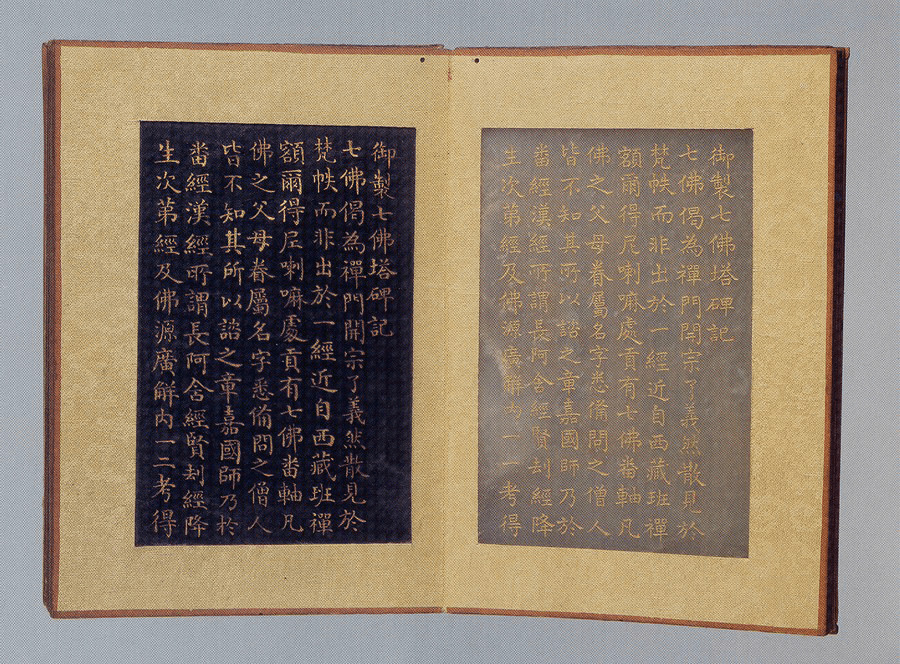 御製七佛塔碑記
七佛偈為禪門開宗了義然散見於
梵帙而非出於一經近自西藏班禪
額爾得尼喇嘛處貢有七佛畨軸凡
佛之父母眷屬名字悉俻問之僧人
皆不知其所以諮之章嘉國師乃於
畨經漢經所謂長阿含經賢刦經降
生次苐經及佛源廣觧内一一考得
御製七佛塔碑記
七佛偈為禪門開宗了義然散見於
梵帙而非出於一經近自西藏班禪
額爾得尼喇嘛處貢有七佛畨軸凡
佛之父母眷屬名字悉俻問之僧人
皆不知其所以諮之章嘉國師乃扵
畨經漢經所謂長阿含經賢刦經降
生次苐經及佛源廣觧内一二考得